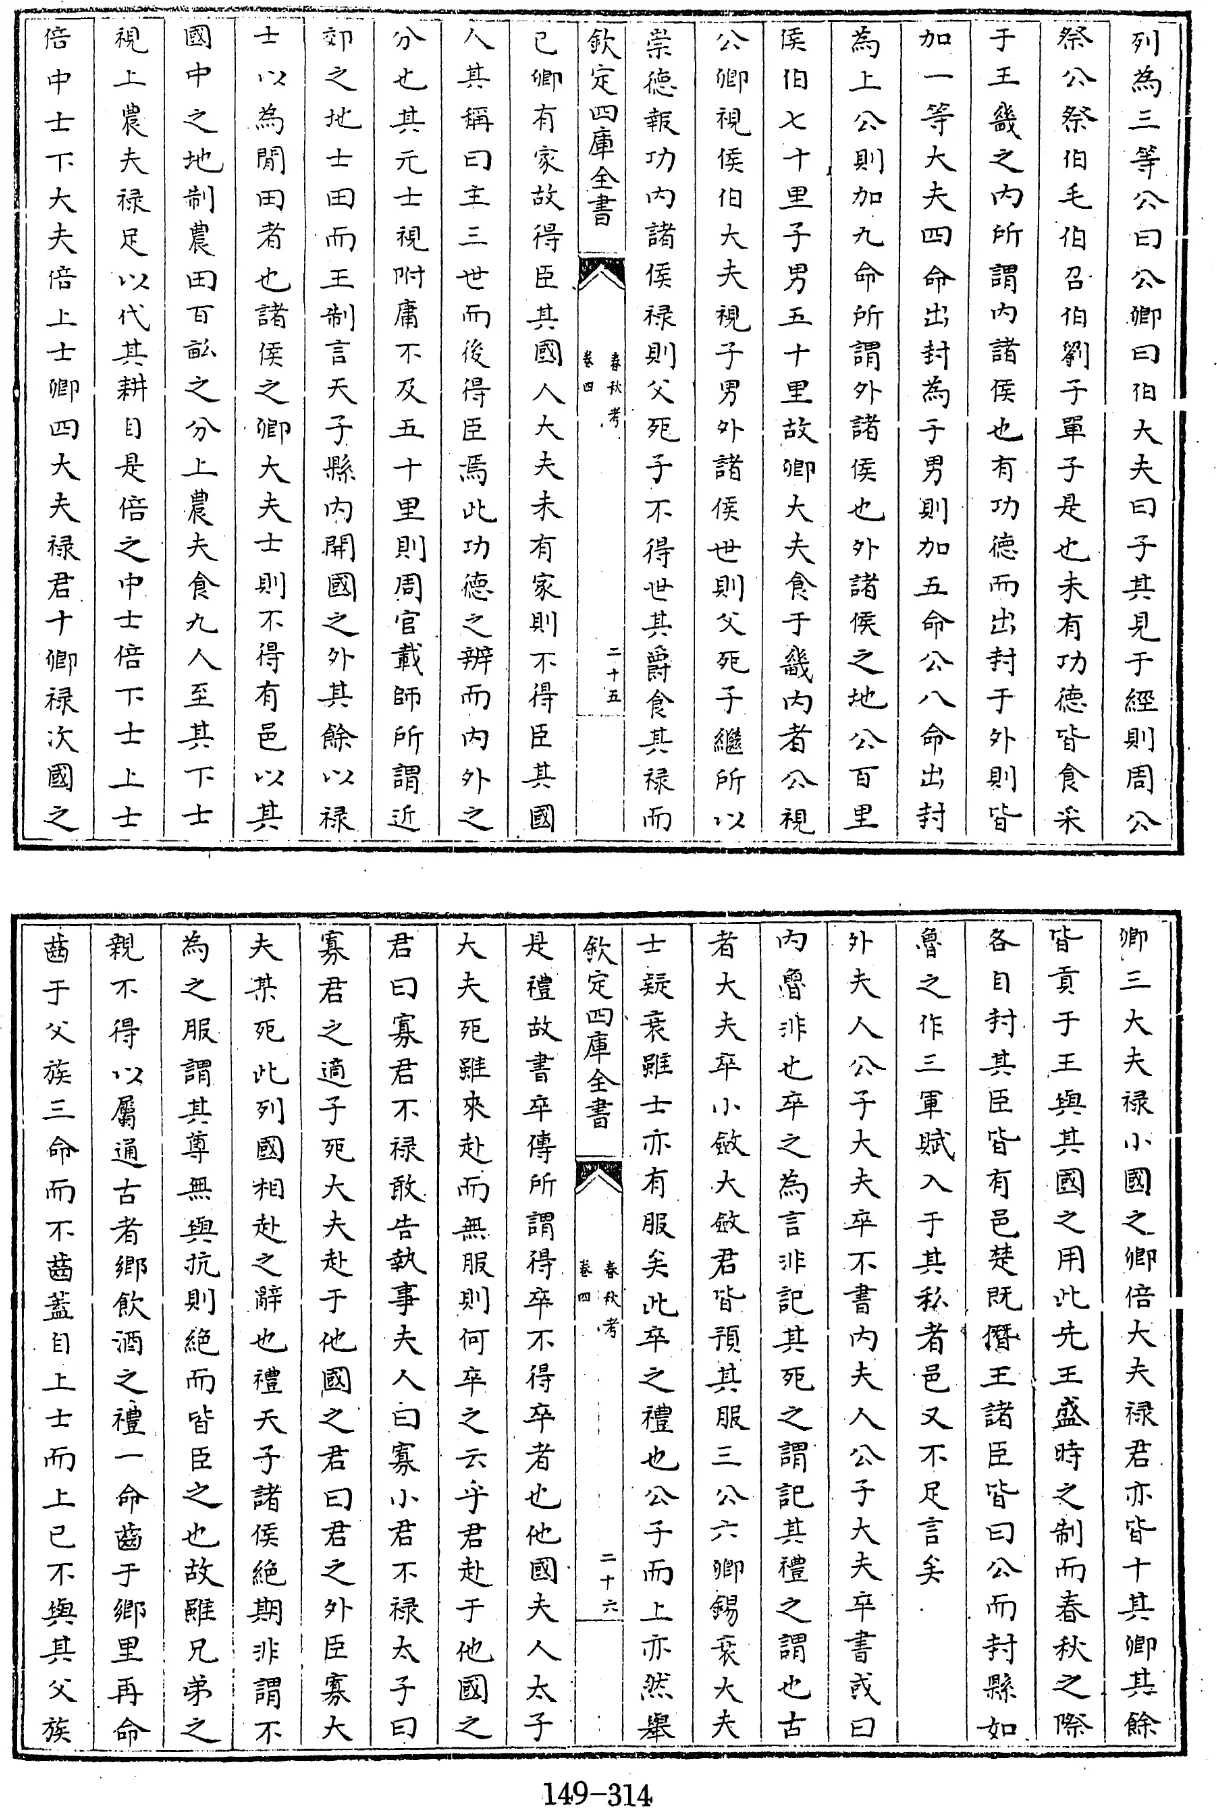 列為三等公曰公卿曰伯大夫曰子其見于經則周公
祭公祭伯毛伯召伯劉子單子是也未有功德皆食采
于王畿之内所謂内諸侯也有功德而出封于外則皆
加一等大夫四命出封為子男則加五命公八命出封
為上公則加九命所謂外諸侯也外諸侯之地公百里
侯伯七十里子男五十里故卿大夫食于畿内者公視
公卿視侯伯大夫視子男外諸侯世則父死子繼所以
崇德報功内諸侯禄則父死子不得世其爵食其禄而
欽定四庫全書
春秋考
卷四
二十五
已卿有家故得臣其國人大夫未有家則不得臣其國
人其稱曰主三世而後得臣焉此功德之辨而内外之
分也其元士視附庸不及五十里則周官載師所謂近
郊之地士田而王制言天子縣内開國之外其餘以禄
士以為閒田者也諸侯之卿大夫士則不得有邑以其
國中之地制農田百畝之分上農夫食九人至其下士
視上農夫禄足以代其耕自是倍之中士倍下士上士
倍中士下大夫倍上士卿四大夫禄君十卿禄次國之
卿三大夫禄小國之卿倍大夫禄君亦皆十其卿其餘
皆貢于王與其國之用此先王盛時之制而春秋之際
各自封其臣皆有邑楚既僭王諸臣皆曰公而封縣如
魯之作三軍賦入于其私者邑又不足言矣
外夫人公子大夫卒不書内夫人公子大夫卒書或曰
内魯非也卒之為言非記其死之謂記其禮之謂也古
者大夫卒小斂大斂君皆預其服三公六卿錫衰大夫
士疑衰雖士亦有服矣此卒之禮也公子而上亦然舉
欽定四庫全書
春秋考
卷四
二十六
是禮故書卒傳所謂得卒不得卒者也他國夫人太子
大夫死雖來赴而無服則何卒之云乎君赴于他國之
君曰寡君不禄敢告執事夫人曰寡小君不禄太子曰
寡君之適子死大夫赴于他國之君曰君之外臣寡大
夫某死此列國相赴之辭也禮天子諸侯絶期非謂不
為之服謂其尊無與抗則絶而皆臣之也故雖兄弟之
親不得以屬通古者鄉飲酒之禮一命齒于鄉里再命
齒于父族三命而不齒蓋自上士而上已不與其父族
149-314